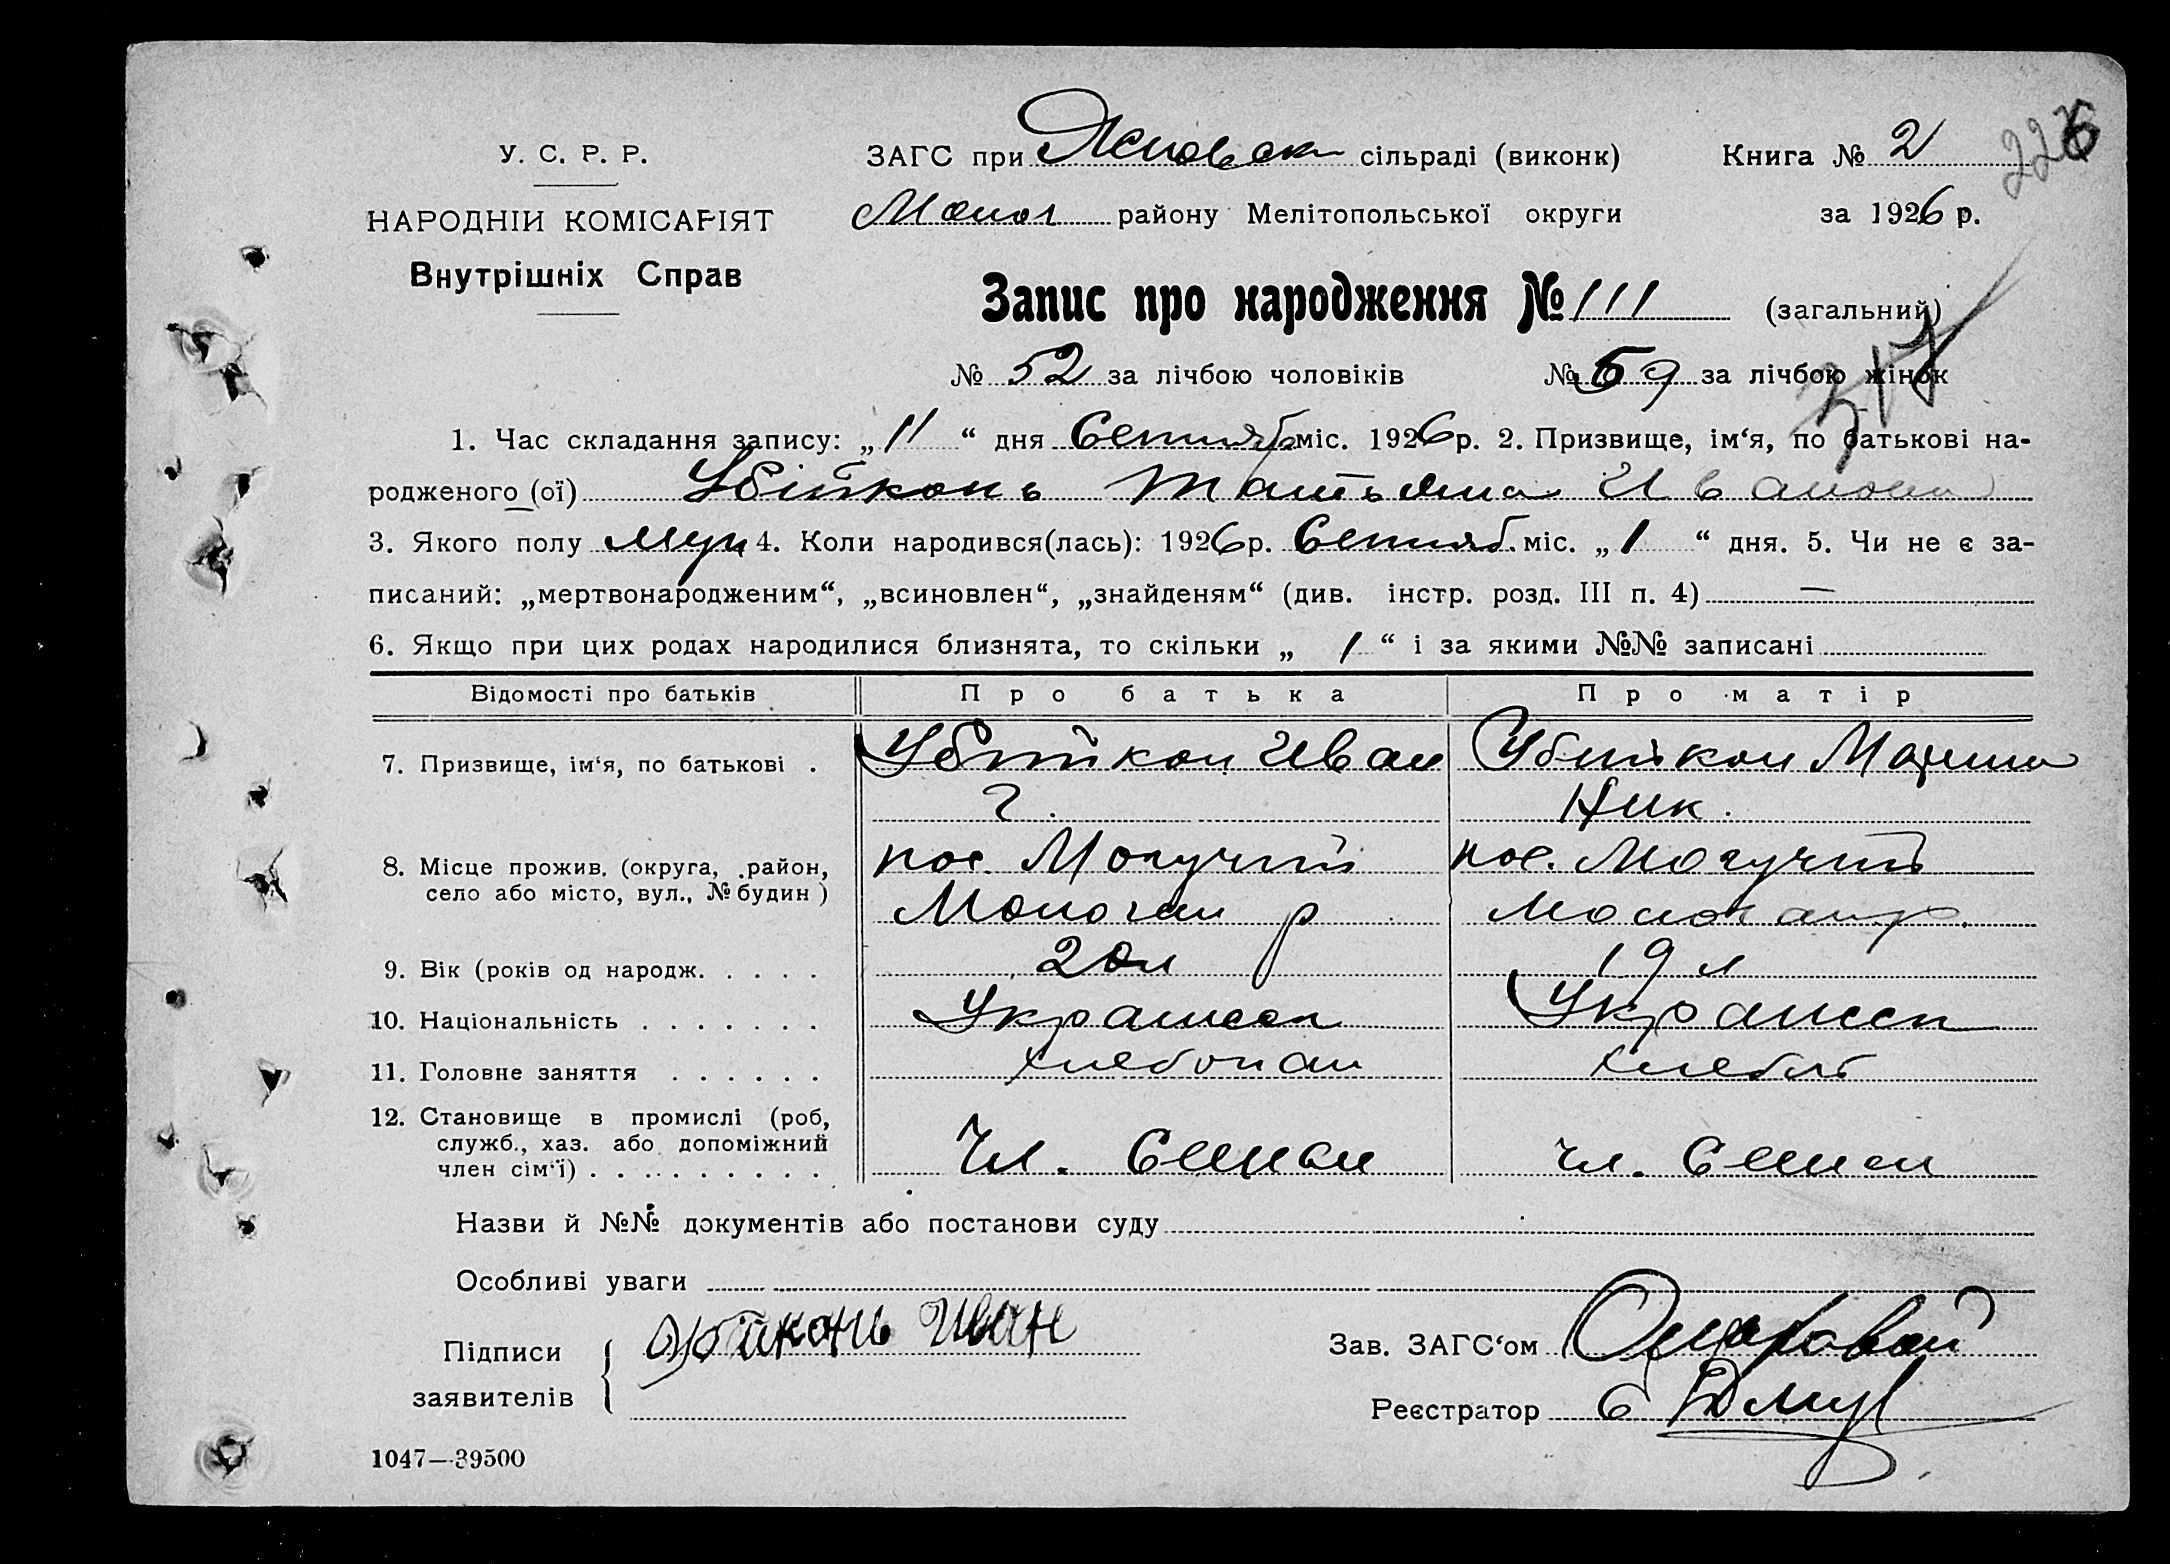 У. С. Р. Р.
НАРОДНІЙ КОМІСАРІЯТ
Внутрішніх Справ
ЗАГС при сільраді (виконк) Книга № 2
району Мелітопольської округи за 1926 р.
Запис про народження № 111 (загальний)
317
№ 52 за лічбою чоловіків № 59 за лічбою жінок
1. Час складання запису: „11“ дня Сентяб міс. 1926 р. 2. Призвище, ім‘я, по батькові на-
родженого (ої) Убійконь Татьяна Ивановна
3. Якого полу 4. Коли народився(лась): 1926 р. Сентяб. міс. „1“ дня. 5. Чи не є за-
писаний: „мертвонародженим“, „всиновлен“, „знайденям“ (див. інстр. розд. III п. 4) —
6. Якщо при цих родах народилися близнята, то скільки „ 1 “ і за якими №№ записані
Відомості про батьків Про батька Про матір
7. Призвище, ім‘я, по батькові . Убийкон Иван Убийкон Марина
Г. Ник.
8. Місце прожив. (округа, район, пос. Могучий пос. Могучий
село або місто, вул., № будин ) р
9. Вік (років од народж. . . . . 20 л 19 л
10. Національність . . . . . . . Украинец Украинец
11. Головне заняття . . . . . . хлебопаш
12. Становище в промислі (роб,
служб., хаз. або допоміжний
член сім‘ї) . . . . . . . . . Чл. Семьи чл. Семьи
Назви й №№ документів або постанови суду
Особливі уваги
Підписи
заявителів
Убійконь Иван
Зав. ЗАГС‘ом
Реєстратор
1047—39500